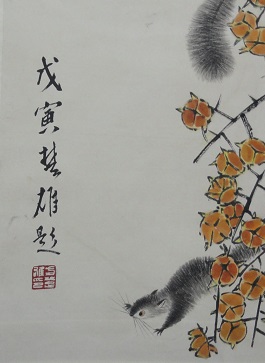 戊寅楚雄题